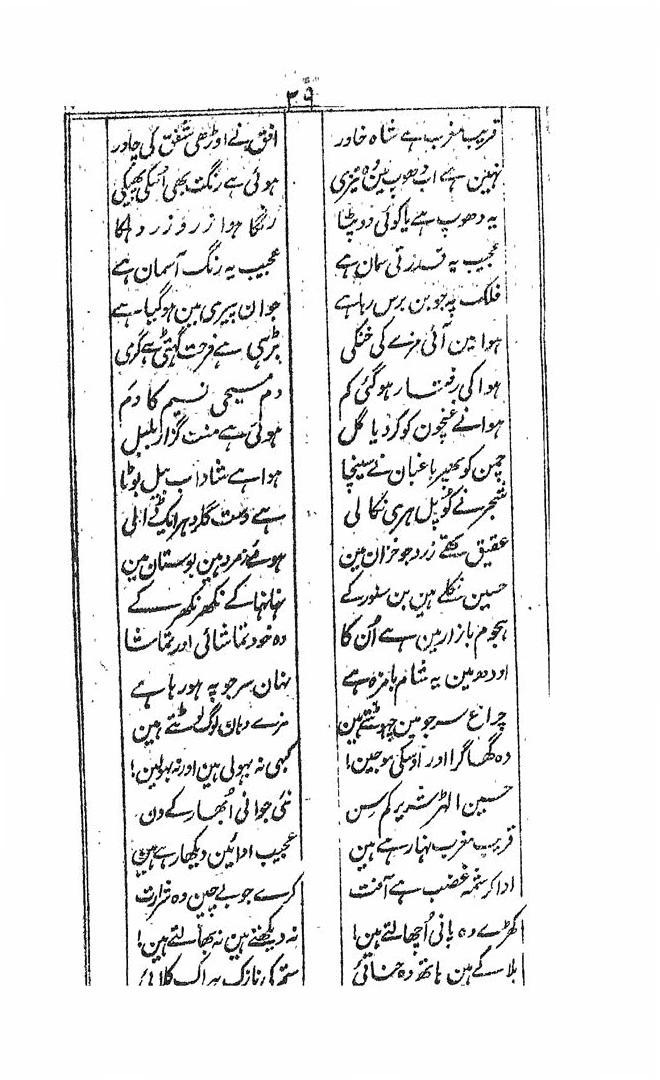 ۳۹
قریب مغرب ہے شاہ خاور
افق نے اوڑھی شفق کی چادر
نہین ہے اب دھوپ مین وہ تیزی
ہوئی ہے رنگت بھی اسکی پھیکی
یہ دھوپ ہے یا کوئی دوپٹا
رنگا ہوا زرد زرد
عجیب یہ قدرتی سمان ہے
عجیب یہ رنگ آسمان ہے
فلک پہ جوبن برس رہا ہے
جوان پیری مین ہوگیا ہے
ہوا مین آئی مزے کی خنکی
بڑہی ہے فرحت گھٹی ہے گرمی
ہوا کی رفتار ہوگئی کم
دم مسیحی نسیم کا دم
ہوا نے غنچون کو کردیا گل
ہوئی ہے منت گزار بلبل
چمن کو پھر باغبان نے سینچا
ہوا ہے شاداب بیل بوٹا
شجر نے کونپل ہری نکالی
ہے دست گلرو ہر ایک ڈالی
عقیق تھے زرد جو خزان مین
ہوے زمرد ہین بوستان مین
حسین نکلے ہین بن سنور کے
نہا نہا کے نکھر نکھر کے
ہجوم بازار مین ہے اُن کا
وہ خود تماشائی اور تماشا
اودھ مین یہ شام بامزہ ہے
نہان سرجو پہ ہو رہا ہے
چراغ سرجو مین چھوٹتے ہین
مزے وہان لوگ لوٹتے ہین
وہ گھاگرا اور اوسکی موجین!
کبھی نہ بہولی ہین اور نہ بہولین!
حسین الہڑ شریر کم سِن
نئی جوانی اُبھار کے دن
قریب مغرب نہا رہے ہین
عجیب ادائین دیکھا رہے ہین
ادا کرشمہ غضب ہے آفت
کرے جو بے چین وہ شرارت
کھڑے وہ پانی اُچھالتے ہین!
نہ دیکھتے ہین نہ بھالتے ہین!
بلا کے ہین ہاتھ وہ حنائی
ستم کی نازک ہر اک کلائی